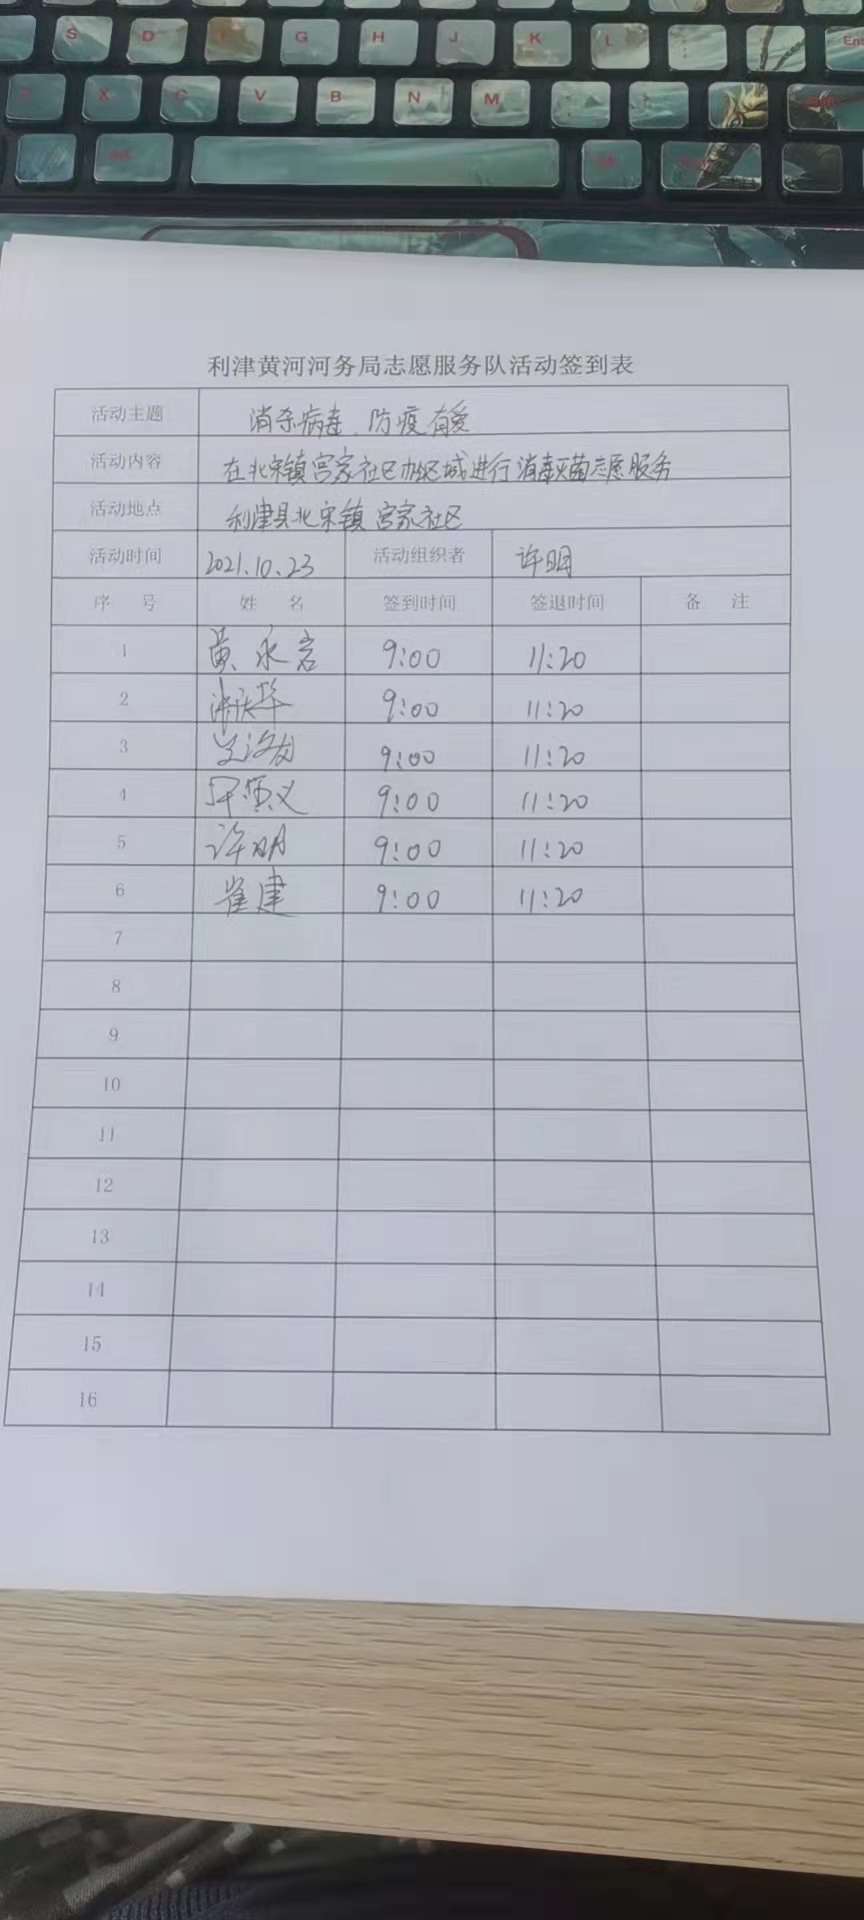 S D F G H J K L Ent
X C V B N M
利津黄河河务局志愿服务队活动签到表
活动主题 消杀病毒、防疫有爱
活动内容 在北宋镇宫家社区办区域进行消毒灭菌志愿服务
活动地点 利津县北宋镇宫家社区
活动时间 2021.10.23 活动组织者 许明
序 号 姓 名 签到时间 签退时间 备 注
1 黄永岩 9:00 11:20
2 9:00 11:20
3 9:00 11:20
4 9:00 11:20
5 许明 9:00 11:20
6 崔建 9:00 11:20
7
8
9
10
11
12
13
14
15
16